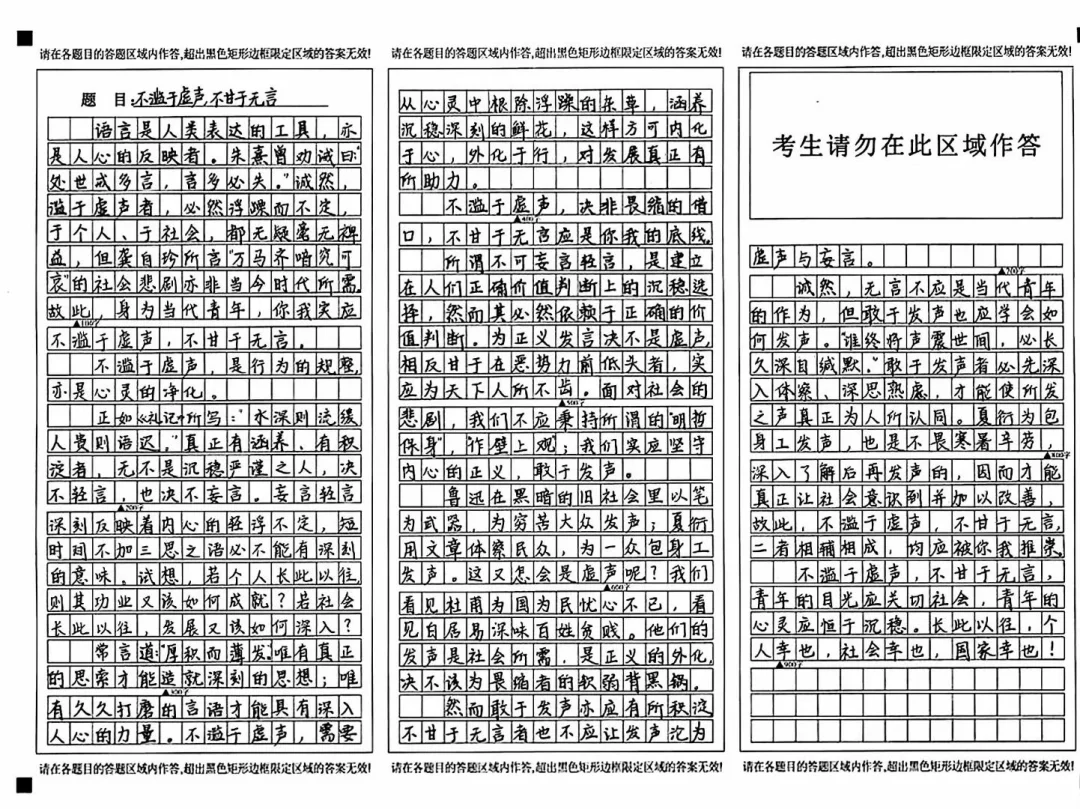 请在各题目的答题区域内作答,超出黑色矩形边框限定区域的答案无效!
题 目:不滥于虚声,不甘于无言
语言是人类表达的工具，亦
是人心的反映者。朱熹曾劝诫曰:"
处世戒多言，言多必失。"诚然，
滥于虚声者，必然浮躁而不定，
于个人、于社会，都无疑毫无裨
益，但龚自珍所言"万马齐喑究可
哀"的社会悲剧亦非当今时代所需。
故此，身为当代青年，你我实应
▲100字
不滥于虚声，不甘于无言。
不滥于虚声，是行为的规整，
亦是心灵的净化。
正如《礼记》所写："水深则流缓，
人贵则语迟。"真正有涵养、有积
淀者，无不是沉稳严谨之人，决
不轻言，也决不妄言。妄言轻言
▲200字
深刻反映着内心的轻浮不定，短
时间不加三思之语必不能有深刻
的意味。试想，若个人长此以往，
则其功业又该如何成就？若社会
长此以往，发展又该如何深入？
常言道:"厚积而薄发。"唯有真正
的思索才能造就深刻的思想；唯
▲300字
有久久打磨的言语才能具有深入
人心的力量。不滥于虚声，需要
请在各题目的答题区域内作答,超出黑色矩形边框限定区域的答案无效!
请在各题目的答题区域内作答,超出黑色矩形边框限定区域的答案无效!
从心灵中根除浮躁的杂草，涵养
沉稳深刻的鲜花，这样方可内化
于心，外化于行，对发展真正有
所助力。
不滥于虚声，决非畏缩的借
▲400字
口，不甘于无言应是你我的底线。
所谓不可妄言轻言，是建立
在人们正确价值判断上的沉稳选
择，然而其必然依赖于正确的价
值判断。为正义发言决不是虚声，
相反甘于在恶势力前低头者，实
应为天下人所不齿。面对社会的
▲500字
悲剧，我们不应秉持所谓的"明哲
保身"，"作壁上观"；我们实应坚守
内心的正义，敢于发声。
鲁迅在黑暗的旧社会里以笔
为武器，为穷苦大众发声；夏衍
用文章体察民众，为一众包身工
发声。这又怎会是虚声呢？我们
▲600字
看见杜甫为国为民忧心不已，看
见白居易深味百姓贫贱。他们的
发声是社会所需，是正义的外化，
决不该为畏缩者的软弱背黑锅。
然而敢于发声亦应有所积淀，
不甘于无言者也不应让发声沦为
请在各题目的答题区域内作答,超出黑色矩形边框限定区域的答案无效!
请在各题目的答题区域内作答,超出黑色矩形边框限定区域的答案无效!
考生请勿在此区域作答
虚声与妄言。
▲700字
诚然，无言不应是当代青年
的作为，但敢于发声也应学会如
何发声。"谁终将声震世间，必长
久深自缄默。"敢于发声者必先深
入体察、深思熟虑，才能使所发
之声真正为人所认同。夏衍为包
身工发声，也是不畏寒暑辛劳，
▲800字
深入了解后再发声的，因而才能
真正让社会意识到并加以改善，
故此，不滥于虚声，不甘于无言，
二者相辅相成，均应被你我推崇。
不滥于虚声，不甘于无言，
青年的目光应关切社会，青年的
心灵应恒于沉稳。长此以往，个
人幸也，社会幸也，国家幸也！
▲900字
请在各题目的答题区域内作答,超出黑色矩形边框限定区域的答案无效!